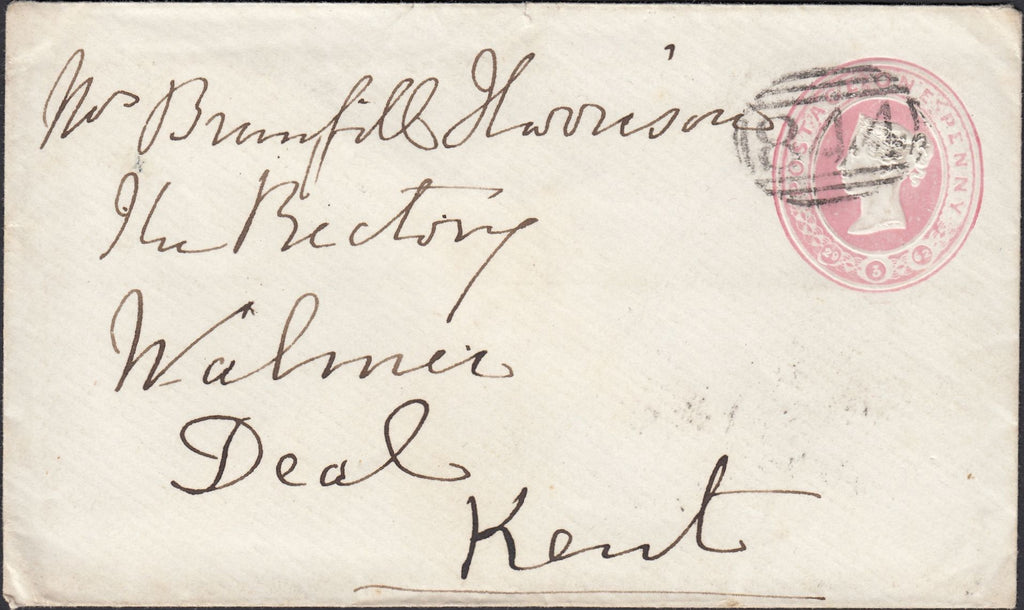 Mrs Brumfill Harrison
The Rectory
Walmer
Deal
Kent
POSTAGE ONE PENNY
29 3 62
844